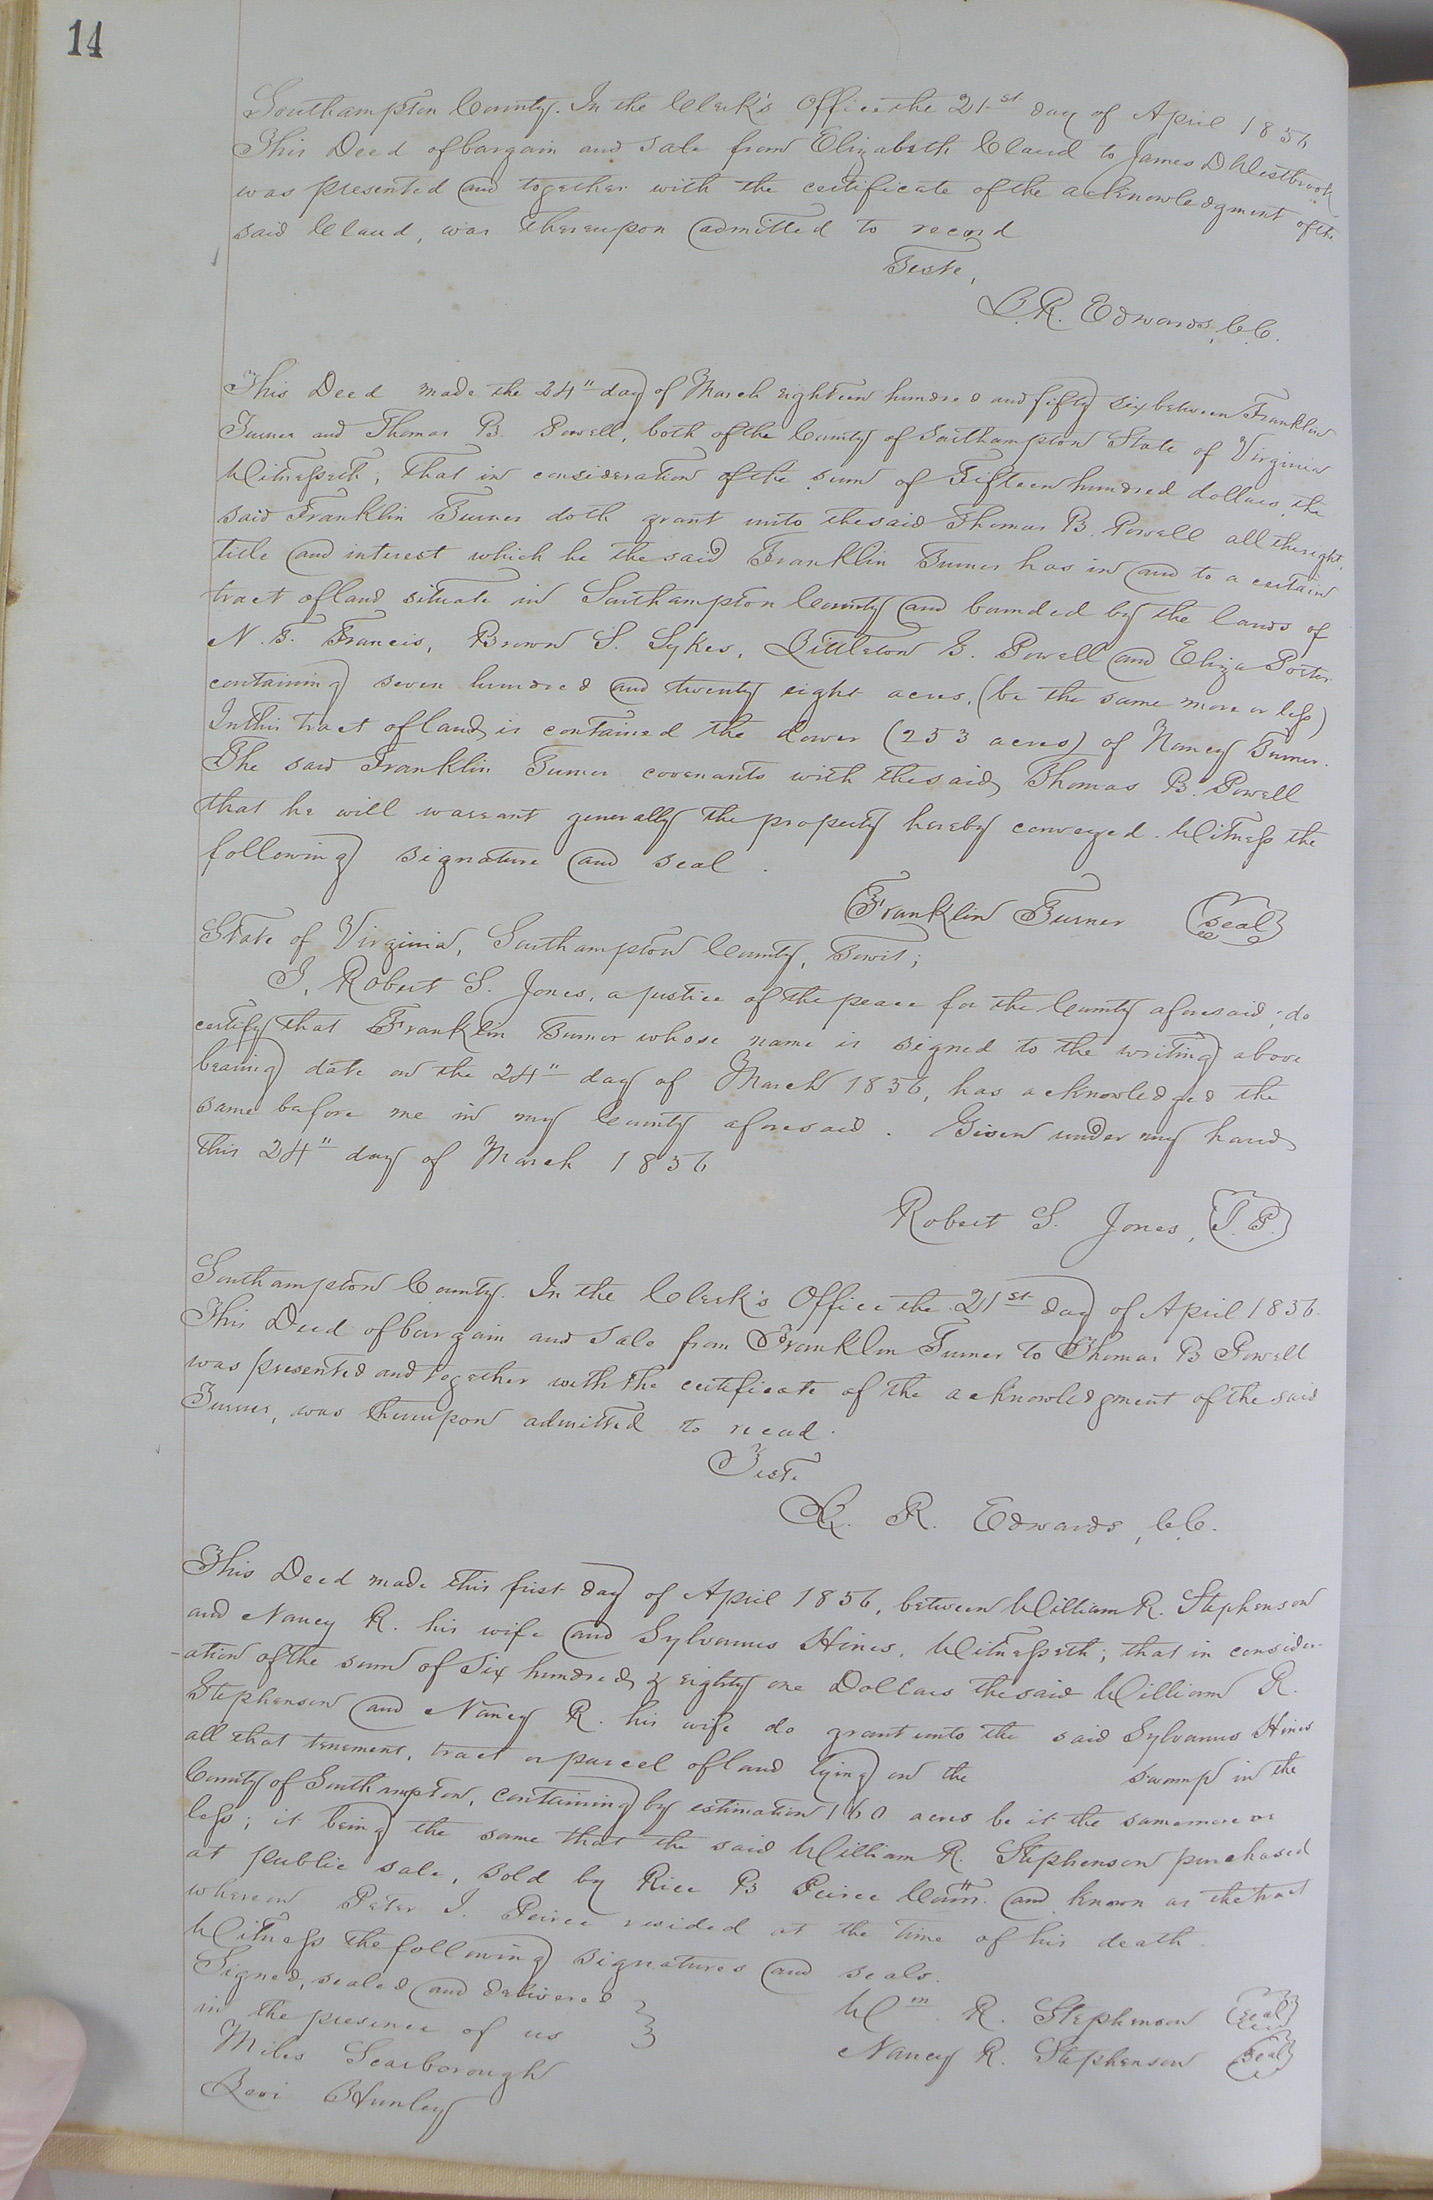 14
Southampton County. In the Clerk's Office the 21st day of April 1856
This Deed of bargain and sale from Elizabeth Claud to James D Westbrook
was presented and together with the certificate of the acknowledgment of the
said Claud, was thereupon admitted to record
Teste,
L. R. Edwards, C.C.
This Deed made the 24" day of March eighteen hundred and fifty six between Franklin
Turner and Thomas B. Powell, both of the County of Southampton State of Virginia
Witnesseth; That in consideration of the sum of Fifteen hundred dollars, the
said Franklin Turner doth grant unto the said Thomas B. Powell all the right,
title and interest which he the said Franklin Turner has in and to a certain
tract of land situate in Southampton County and bounded by the lands of
N. T. Francis, Brown S. Sykes, Littleton G. Powell and Eliza Porter
containing seven hundred and twenty eight acres, (be the same more or less)
In this tract of land is contained the dower (253 acres) of Nancy Turner.
The said Franklin Turner covenants with the said Thomas B. Powell
that he will warrant generally the property hereby conveyed. Witness the
following signature and seal.
Franklin Turner seal
State of Virginia, Southampton County, Towit;
I, Robert S. Jones, a justice of the peace for the County aforesaid; do
certify that Franklin Turner whose name is signed to the writing above
bearing date on the 24" day of March 1856, has acknowledged the
same before me in my County aforesaid. Given under my hand
this 24" day of March 1856
Robert S. Jones, J.P.
Southampton County. In the Clerk's Office the 21st day of April 1856.
This Deed of bargain and sale from Franklin Turner to Thomas B Powell
was presented and together with the certificate of the acknowledgment of the said
Turner, was thereupon admitted to recod.
Teste
L. R. Edwards, C.C.
This Deed made this first day of April 1856, between William R. Stephenson
and Nancy R. his wife and Sylvanus Hines, Witnesseth; that in consider-
-ation of the sum of Six hundred & eighty one Dollars the said William R.
Stephenson and Nancy R. his wife do grant unto the said Sylvanus Hines
all that tenement, tract or parcel of land lying on the swamp in the
County of Southampton, containing by estimation 160 acres be it the same more or
less; it being the same that the said William R. Stephenson purchased
at public sale, sold by Rice B Peirce Comr. and known as the tract
whereon Peter J. Peirce resided at the time of his death.
Witness the following signatures and seals.
Signed, sealed and delivered
in the presence of us
Wm. R. Stephenson seal
Nancy R. Stephenson seal
Miles Scarborough
Levi BHunley